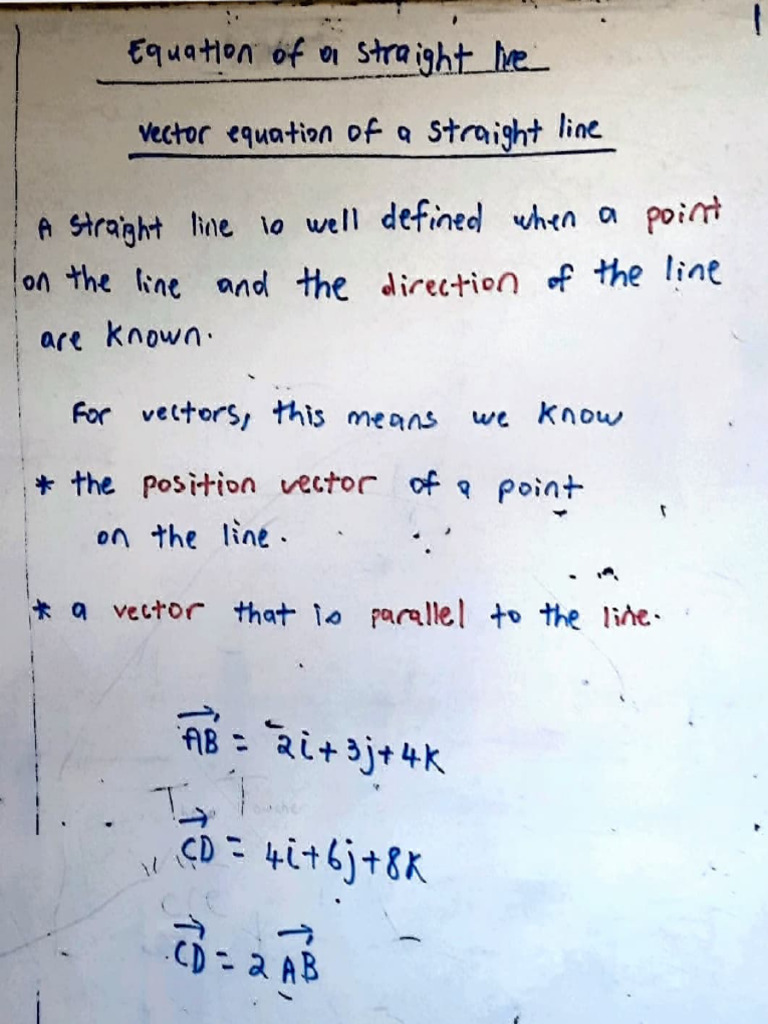 1
Equation of a straight line
vector equation of a straight line
A straight line is well defined when a point
on the line and the direction of the line
are known.
For vectors, this means we know
* the position vector of a point
on the line.
* a vector that is parallel to the line.
AB = 2i + 3j + 4k
CD = 4i + 6j + 8k
CD = 2 AB